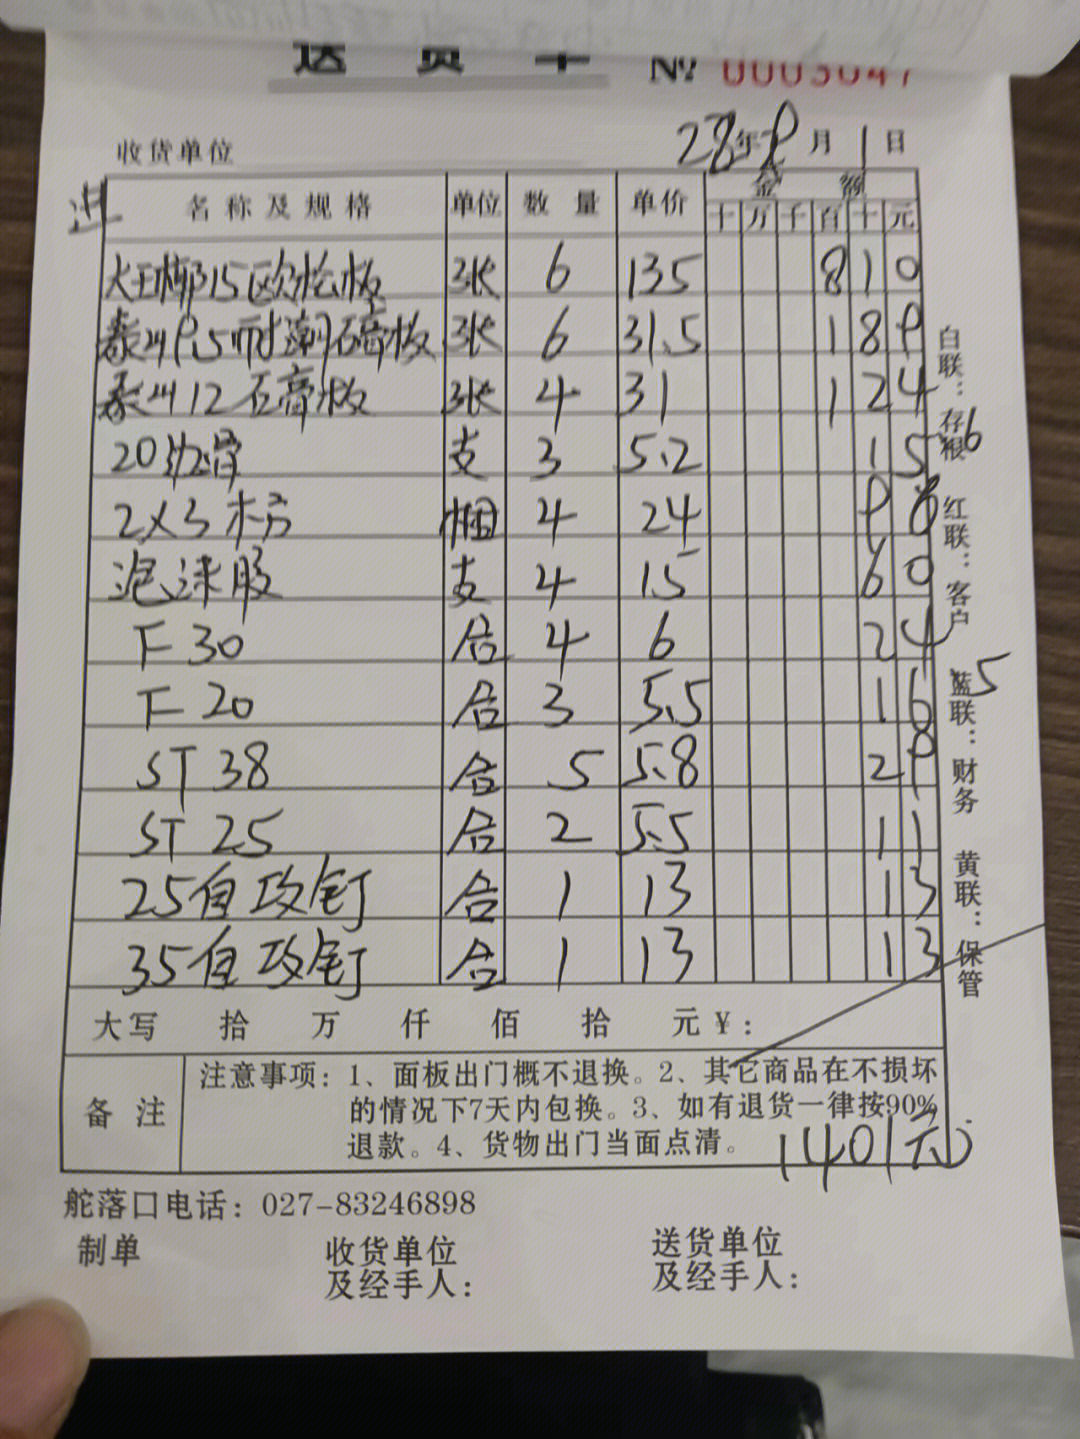 送货单 № 0003047
收货单位 年 月 1 日
进
名称及规格 单位 数量 单价 金额
十 万 千 百 十 元
大王椰15欧松板 张 6 135 8 1 0
泰山9.5耐潮石膏板 张 6 31.5 1 8 9
泰山12石膏板 张 4 31 1 2 4
20边骨 支 3 5.2 1 5 6
2X3木方 捆 4 24 9 6
泡沫胶 支 4 15 6 0
F30 合 4 6 2 4
F20 合 3 5.5 1 6 5
ST38 合 5 5.8 2 9
ST25 合 2 5.5 1 1
25自攻钉 合 1 13 1 3
35自攻钉 合 1 13 1 3
大写 拾 万 仟 佰 拾 元 ¥：
备注
注意事项：1、面板出门概不退换。2、其它商品在不损坏
的情况下7天内包换。3、如有退货一律按90%
退款。4、货物出门当面点清。
1401元
舵落口电话：027-83246898
制单 收货单位 送货单位
及经手人： 及经手人：
白联：存根 红联：客户 蓝联：财务 黄联：保管